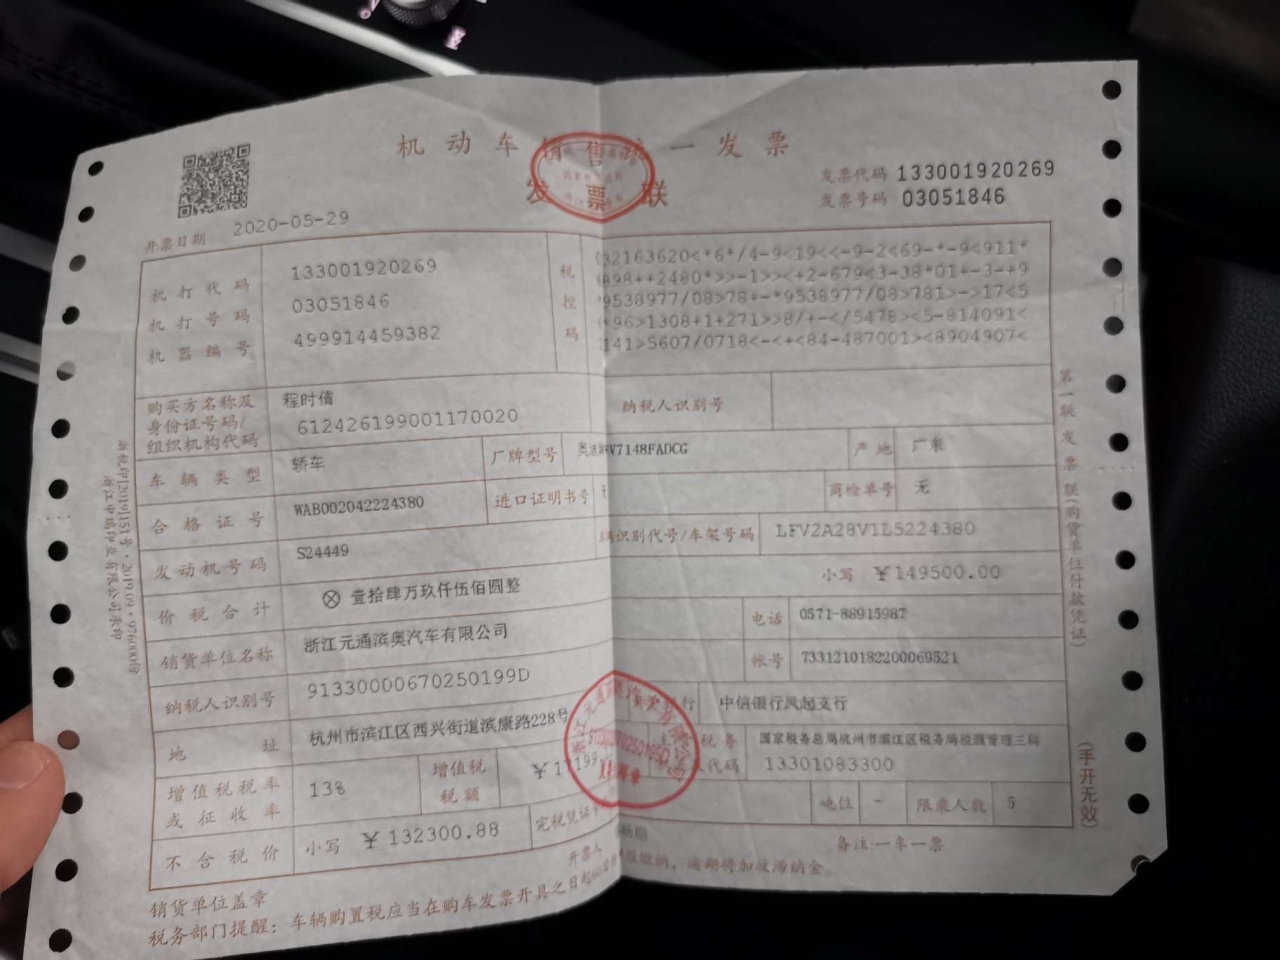 机动车销售统一发票
发票联
发票代码 133001920269
发票号码 03051846
开票日期 2020-05-29
机打代码 133001920269
机打号码 03051846
机器编号 499914459382
税控码
32163620<*6*/4-9<19<<-9-2<69-*-9<911*
898++2480*>>-1>><+2-679<3-38*01+-3-+9
*9538977/08>78+-*9538977/08>781>->17<5
+96>1308+1+271>>8/+-</5478><5-814091<
141>5607/0718<-<+<84-487001><8904907<
购买方名称及身份证号码/组织机构代码 程时倩
612426199001170020
纳税人识别号
车辆类型 轿车 厂牌型号 FV7148FADCG 产地 广东
合格证号 WAB002042224380 进口证明书号 商检单号 无
发动机号码 S24449 识别代号/车架号码 LFV2A28V1L5224380
价税合计 ⊗ 壹拾肆万玖仟伍佰圆整 小写 ¥149500.00
销货单位名称 浙江元通滨奥汽车有限公司 电话 0571-88915987
纳税人识别号 91330000670250199D 帐号 7331210182200069521
地址 杭州市滨江区西兴街道滨康路228号 行 中信银行凤起支行
增值税税率或征收率 13% 增值税税额 税务 国家税务总局杭州市滨江区税务局税源管理三科
代码 13301083300
不含税价 小写 ¥132300.88 完税凭证 吨位 - 限乘人数 5
销货单位盖章 开票人 备注:一车一票
税务部门提醒：车辆购置税应当在购车发票开具之日起 缴纳，逾期将加收滞纳金。
第一联 发票联(购货单位付款凭证)
(手开无效)